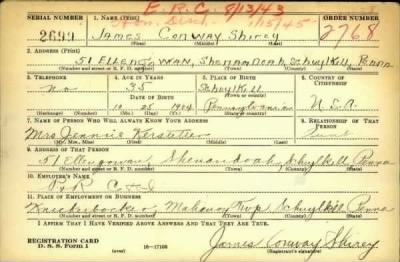 E.R.C. 8/13/43
Hon. Disch. 1/15/45
SERIAL NUMBER 1. NAME (Print) ORDER NUMBER
2699 James Conway Shirey 2768
(First) (Middle) (Last)
2. ADDRESS (Print)
51 ELLENGOWAN, SHENANDOAH, Schuylkill, Penna
(Number and street or R. F. D. number) (Town) (County) (State)
3. TELEPHONE 4. AGE IN YEARS 5. PLACE OF BIRTH 6. COUNTRY OF CITIZENSHIP
no 35 Schuylkill
DATE OF BIRTH (Town or county)
10 25 1904 Pennsylvania U.S.A.
(Exchange) (Number) (Mo.) (Day) (Yr.) (State or country)
7. NAME OF PERSON WHO WILL ALWAYS KNOW YOUR ADDRESS 8. RELATIONSHIP OF THAT PERSON
Mrs Jennie Kerstetter Aunt
(Mr., Mrs., Miss) (First) (Middle) (Last)
9. ADDRESS OF THAT PERSON
51 Ellengowan Shenandoah, Schuylkill Penna
(Number and street or R. F. D. number) (Town) (County) (State)
10. EMPLOYER'S NAME
P & R C & I
11. PLACE OF EMPLOYMENT OR BUSINESS
Knickerbocker Mahanoy Twp. Schuylkill Penna
(Number and street or R. F. D. number) (Town) (County) (State)
I AFFIRM THAT I HAVE VERIFIED ABOVE ANSWERS AND THAT THEY ARE TRUE.
REGISTRATION CARD
D. S. S. Form 1 (over) 16-17105 James Conway Shirey
(Registrant's signature)